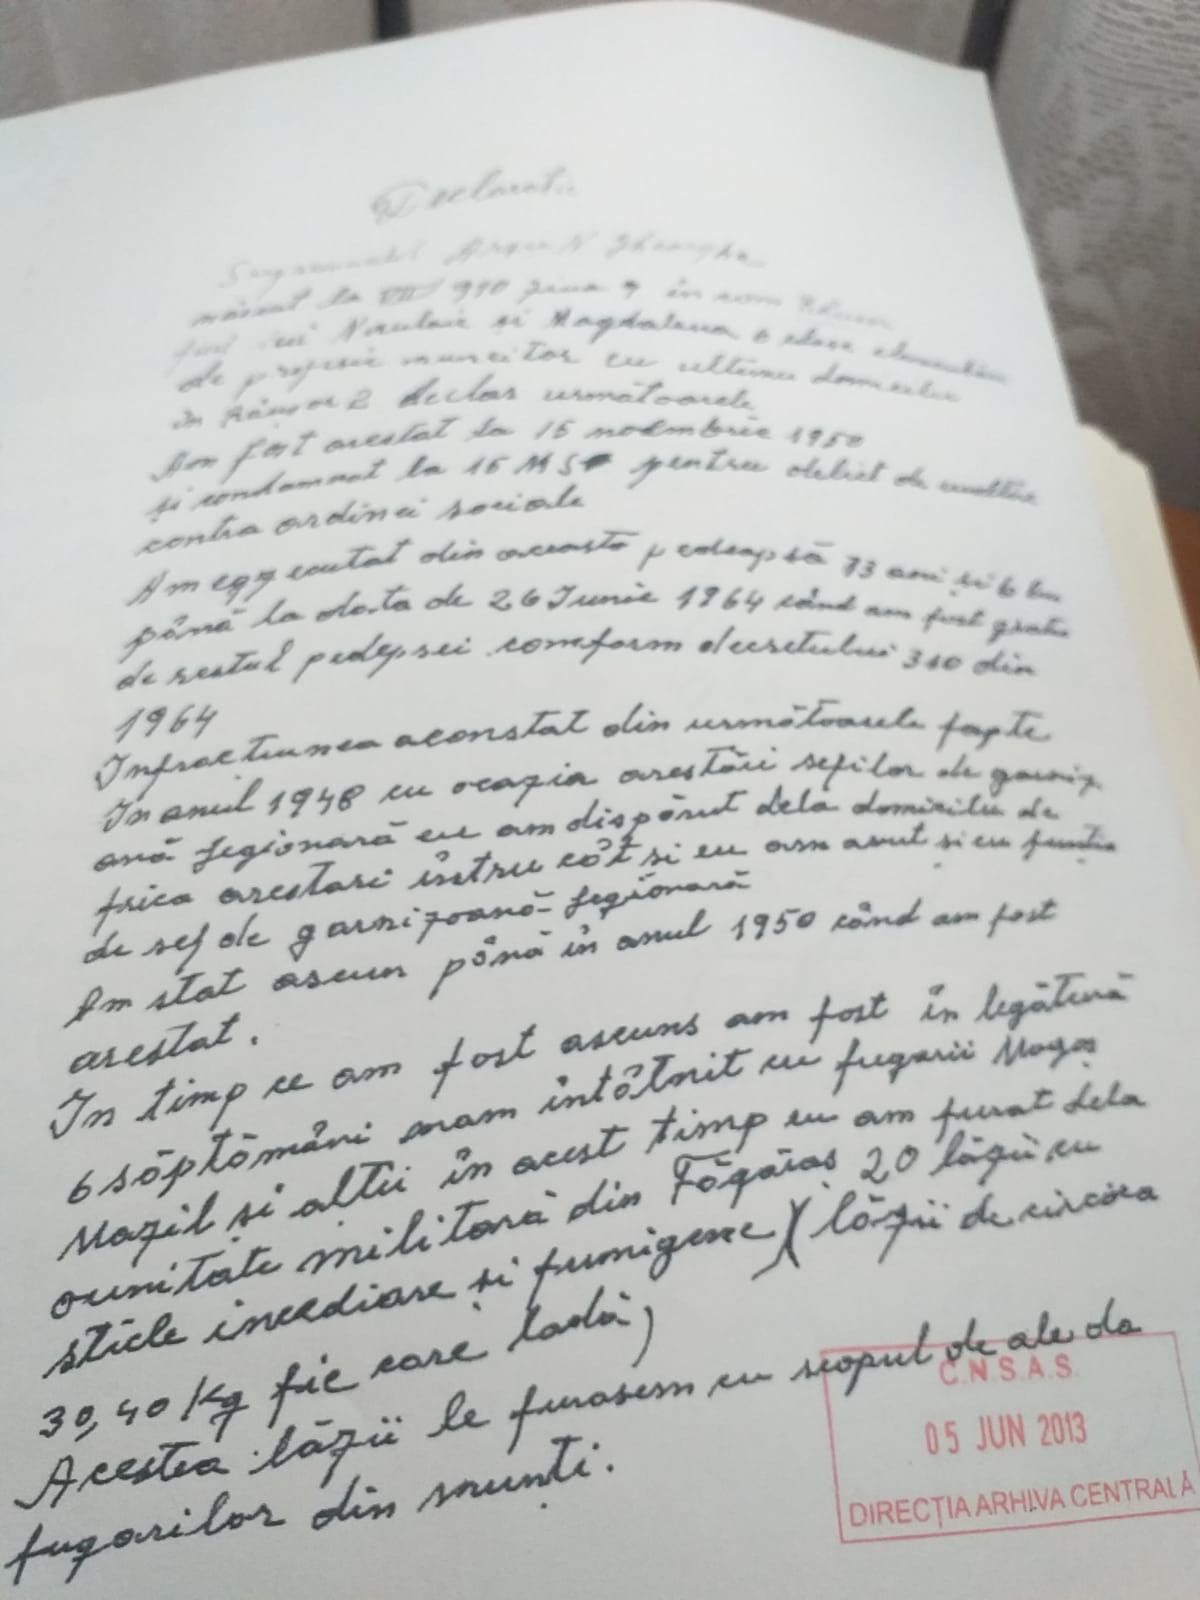 Declaratie
Gheorghe
născut la VII 910 ziua 9 în com
Niculaie și Magdalena clase
de profesie muncitor cu ultimu domiciliu
în 2 declar următoarele
Am fost arestat la 15 noembrie 1950
și condamnat la 15 MS pentru delict de uneltire
contra ordinei sociale
Am egzecutat din aceasta pedeapsă 13 ani și 6 lun
până la data de 26 Iunie 1964 când am fost gratia
de restul pedepsei comform decretului 310 din
1964
Infractiunea aconstat din următoarele fapte
In anul 1948 cu ocazia arestări sefilor de garniz
oană legionară eu am dispărut dela domiciliu de
frica arestari întru cât si eu am avut si eu funtia
de sef de garnizoană legionară
Am stat ascun până în anul 1950 când am fost
arestat.
In timp ce am fost ascuns am fost în legătură
6 săptămâni neam întâlnit cu fugarii Mogoș
Mazil si altii în acest timp eu am furat dela
ounitate militară din Făgăras 20 lăzii cu
sticle incediare si fumigene (lăzii de circica
30,40 Kg fie care ladă)
Acestea lăzii le furasem cu scopul de ale da
fugarilor din munti.
C.N.S.A.S.
05 JUN 2013
DIRECȚIA ARHIVA CENTRALĂ